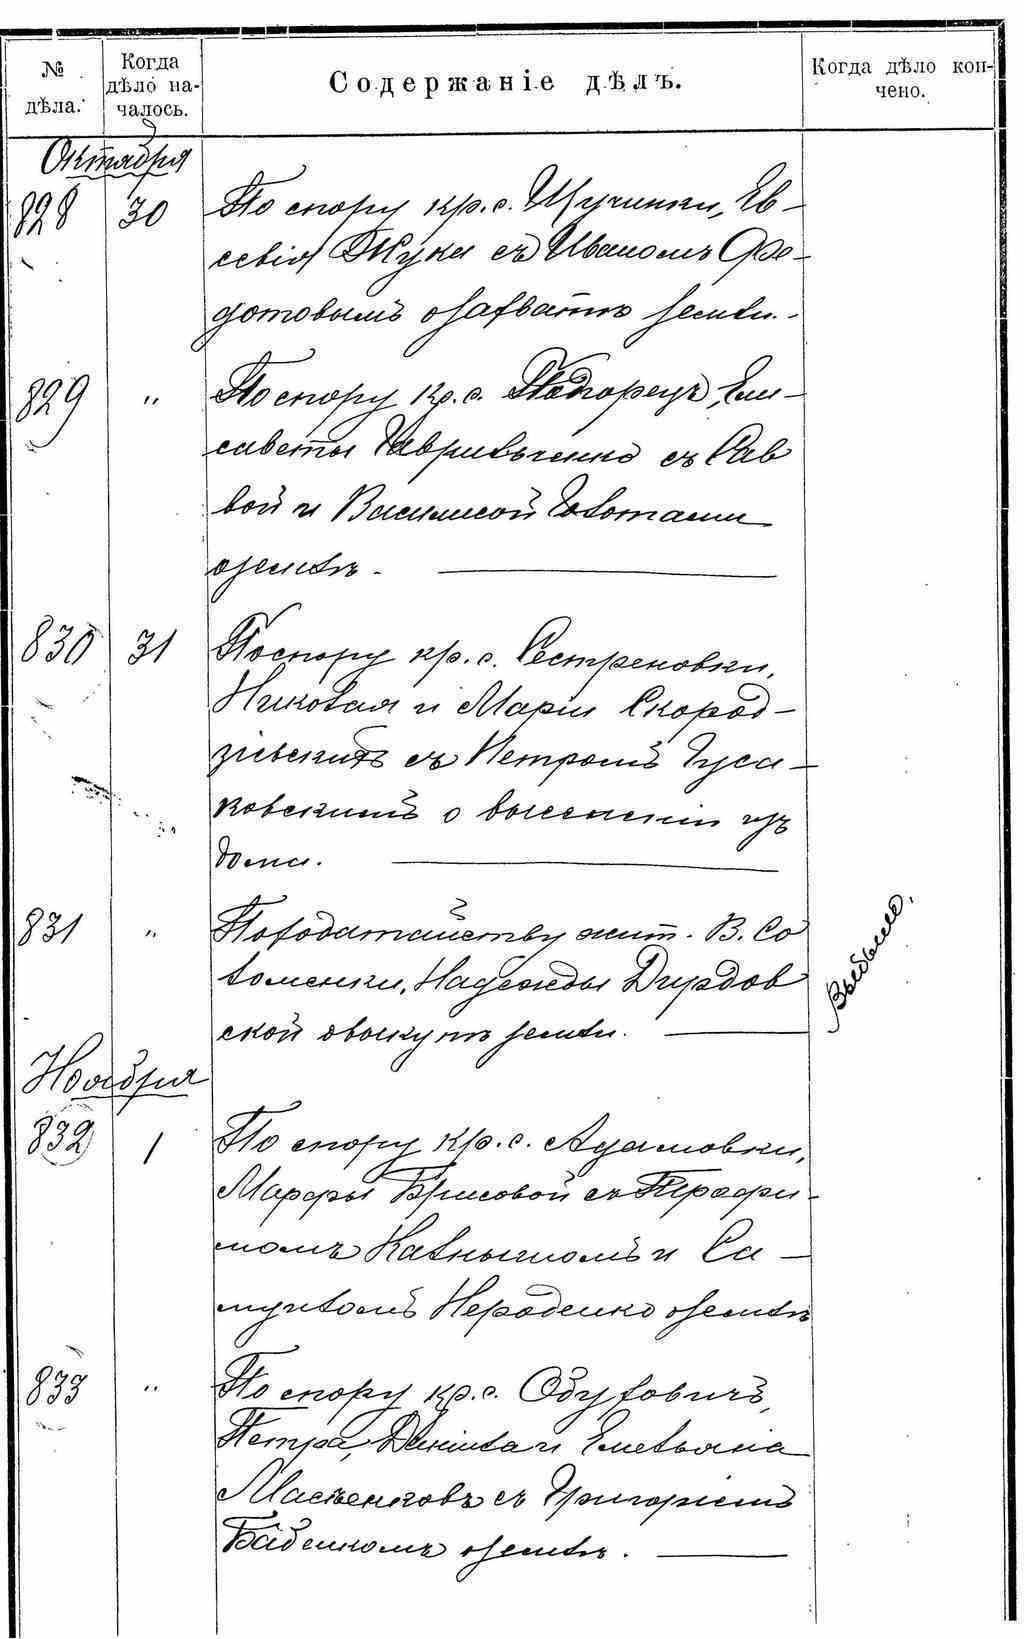 № дѣла.
Когда дѣло на-
чалось.
Содержаніе дѣлъ.
Когда дѣло кон-
чено.
Октября
828 30 По спору кр. с. Щучинки, Ев-
севія Жука съ Иваномъ Фе-
дотовымъ о захватѣ земли.
829 " По спору кр. с. Подгорецъ, Ели-
саветы Гаврильченко съ Сав
вой и Василисой Головами
о землѣ.
830 31 По спору кр. с. Сестреновки,
Николая и Маріи Скород-
зіевскихъ съ Петромъ Гуса-
ковскимъ о выселеніи изъ
дома.
831 " По ходатайству жит. В. Со
ломенки, Надежды Дирдов
ской о выкупѣ земли.
Выбыло.
Ноября
832 1 По спору кр. с. Адамовки,
Марфы Борисовой съ Трофи-
момъ Калнышомъ и Са-
муиломъ Нероденко о землѣ
833 " По спору кр. с. Обуховичъ,
Петра, Даніила и Емельяна
Масленковъ съ Григоріемъ
Бабенкомъ о землѣ.